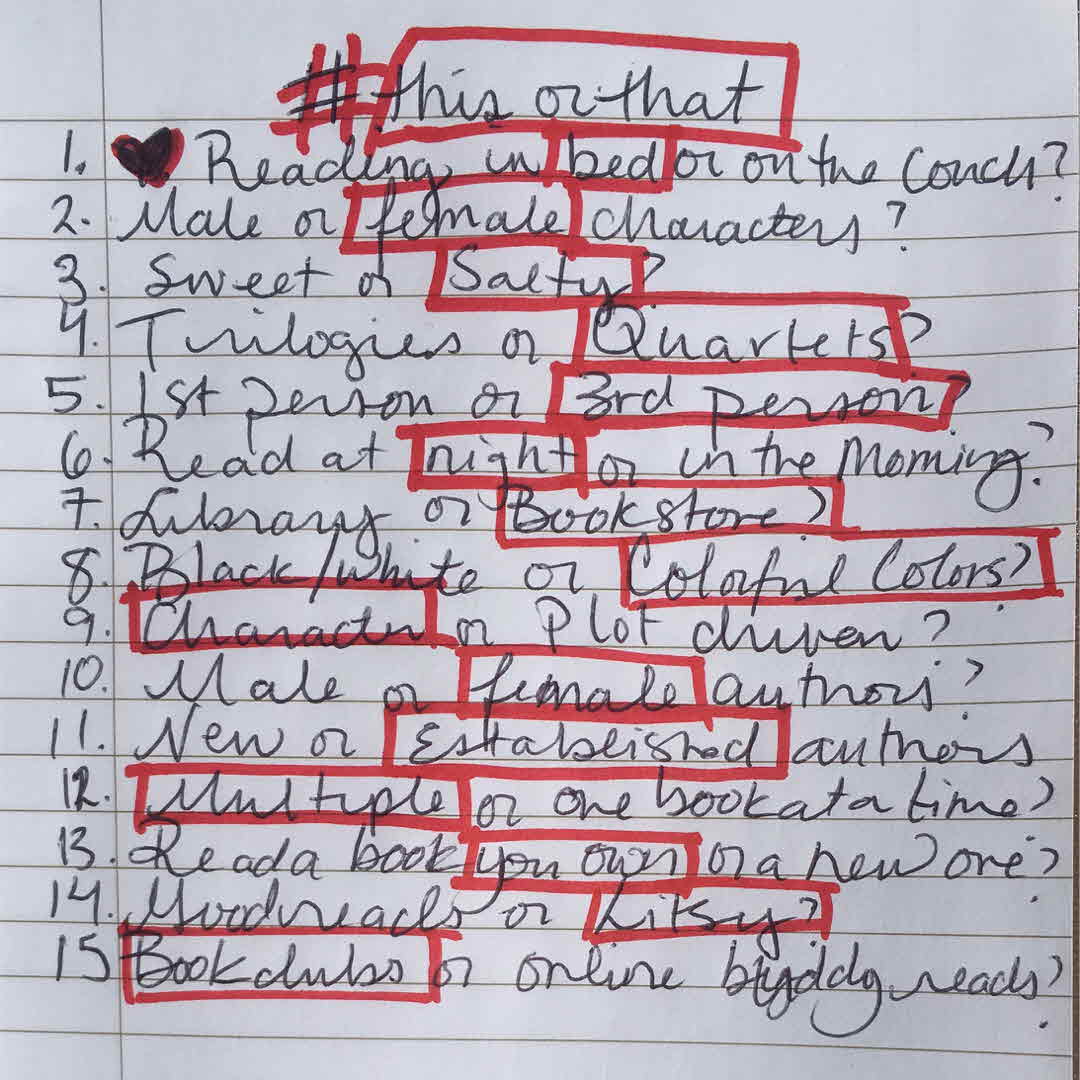 #this or that
1. ♥ Reading, in bed or on the couch?
2. Male or female characters?
3. Sweet or Salty?
4. Trilogies or Quartets?
5. 1st person or 3rd person?
6. Read at night or in the Morning?
7. Library or Bookstore?
8. Black/white or Colorful Colors?
9. Character or Plot driven?
10. Male or female authors?
11. New or Established authors
12. Multiple or one book at a time?
13. Read a book you own or a new one?
14. or Litsy?
15 Bookclubs or online reads?